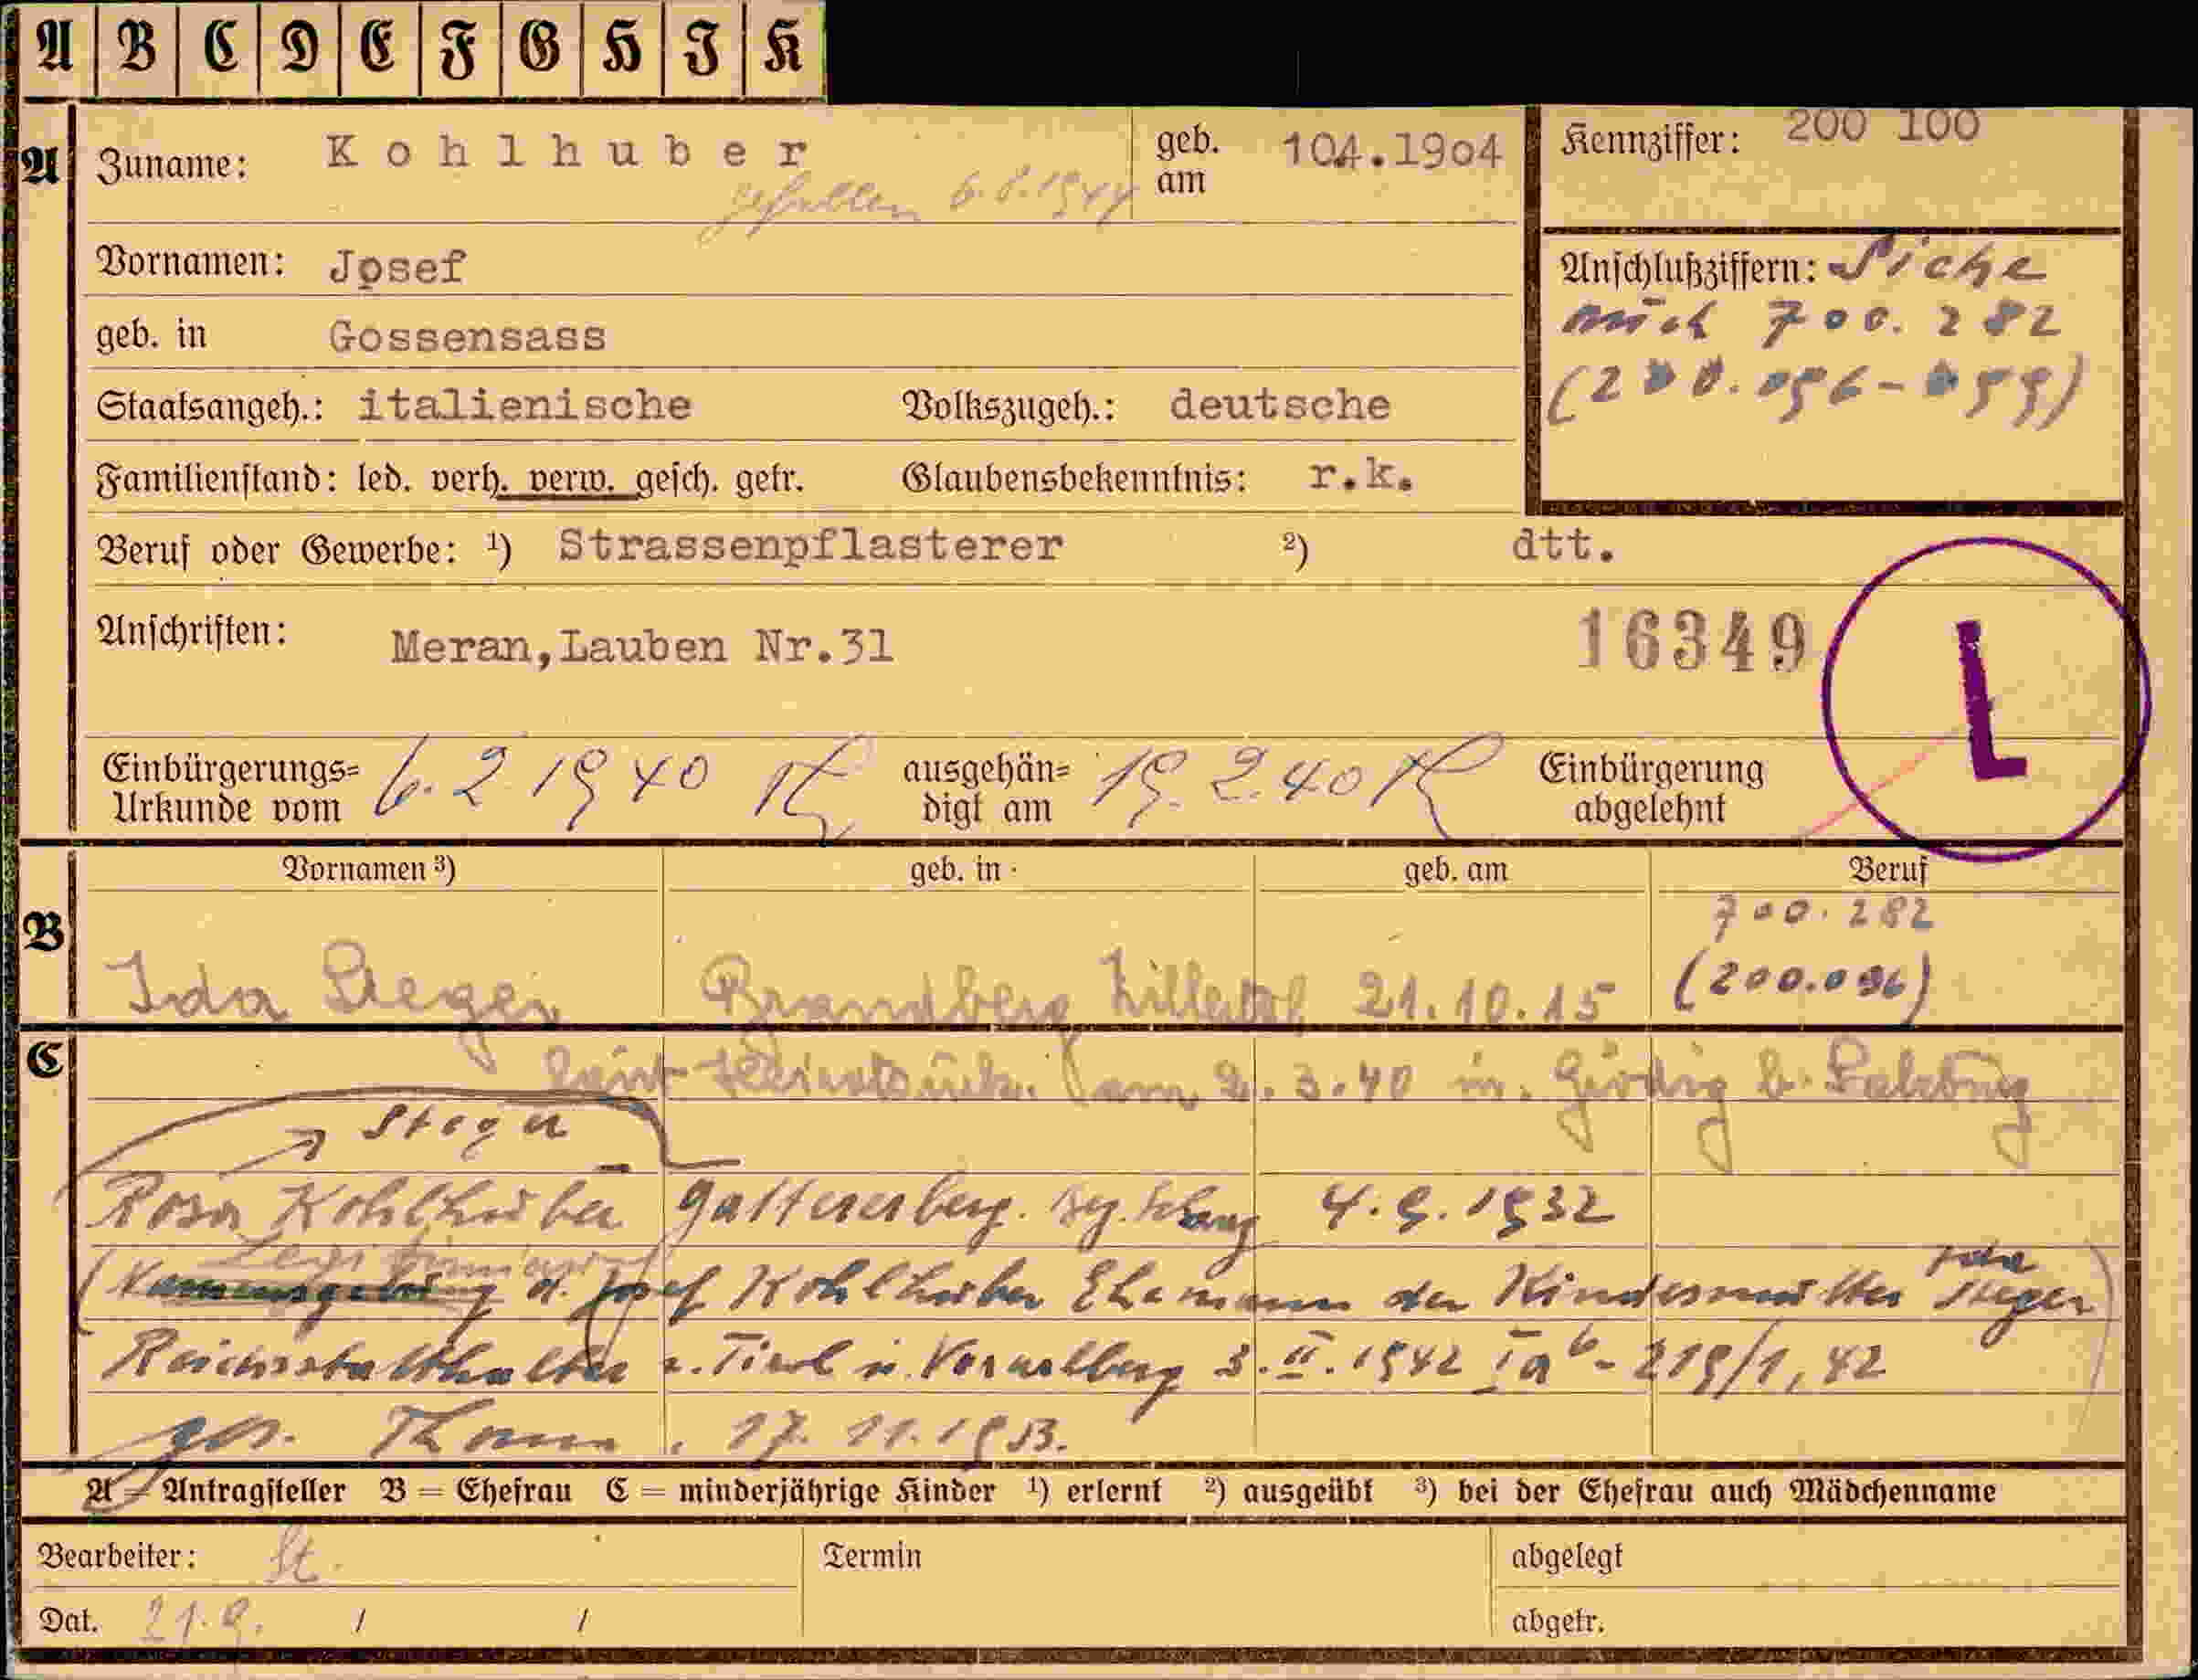 A B C D E F G H I K
A Zuname: Kohlhuber geb. am 104.1904 Kennziffer: 200 100
gefallen 6.8.1944
Vornamen: Josef Anschlußziffern: Siehe
geb. in Gossensass auch 700.282
Staatsangeh.: italienische Volkszugeh.: deutsche (200.096-099)
Familienstand: led. verh. verw. gesch. getr. Glaubensbekenntnis: r.k.
Beruf oder Gewerbe: ¹) Strassenpflasterer ²) dtt.
Anschriften: Meran,Lauben Nr.31 16349 L
Einbürgerungs= Urkunde vom 6.2 1940 ausgehän= digt am 19.2.40 Einbürgerung abgelehnt
Vornamen ³) geb. in geb. am Beruf
700.282
B Ida Steger Brandberg Zillertal 21.10.15 (200.096)
C laut Heiratsurk. am 2.3.40 in Grödig b. Salzburg
Steger
Rosa Kohlhuber Gattererberg. 4.9.1932
Legitimierung
(Namensgebung d. Josef Kohlhuber Ehemann der Kindesmutter Ida Steger)
Reichsstatthalter i. Tirol u. Vorarlberg 3.II.1942 Ia b - 219/1, 42
17.11.1953.
A = Antragsteller B = Ehefrau C = minderjährige Kinder ¹) erlernt ²) ausgeübt ³) bei der Ehefrau auch Mädchenname
Bearbeiter: St. Termin abgelegt
Dat. 21.9. / / abgetr.